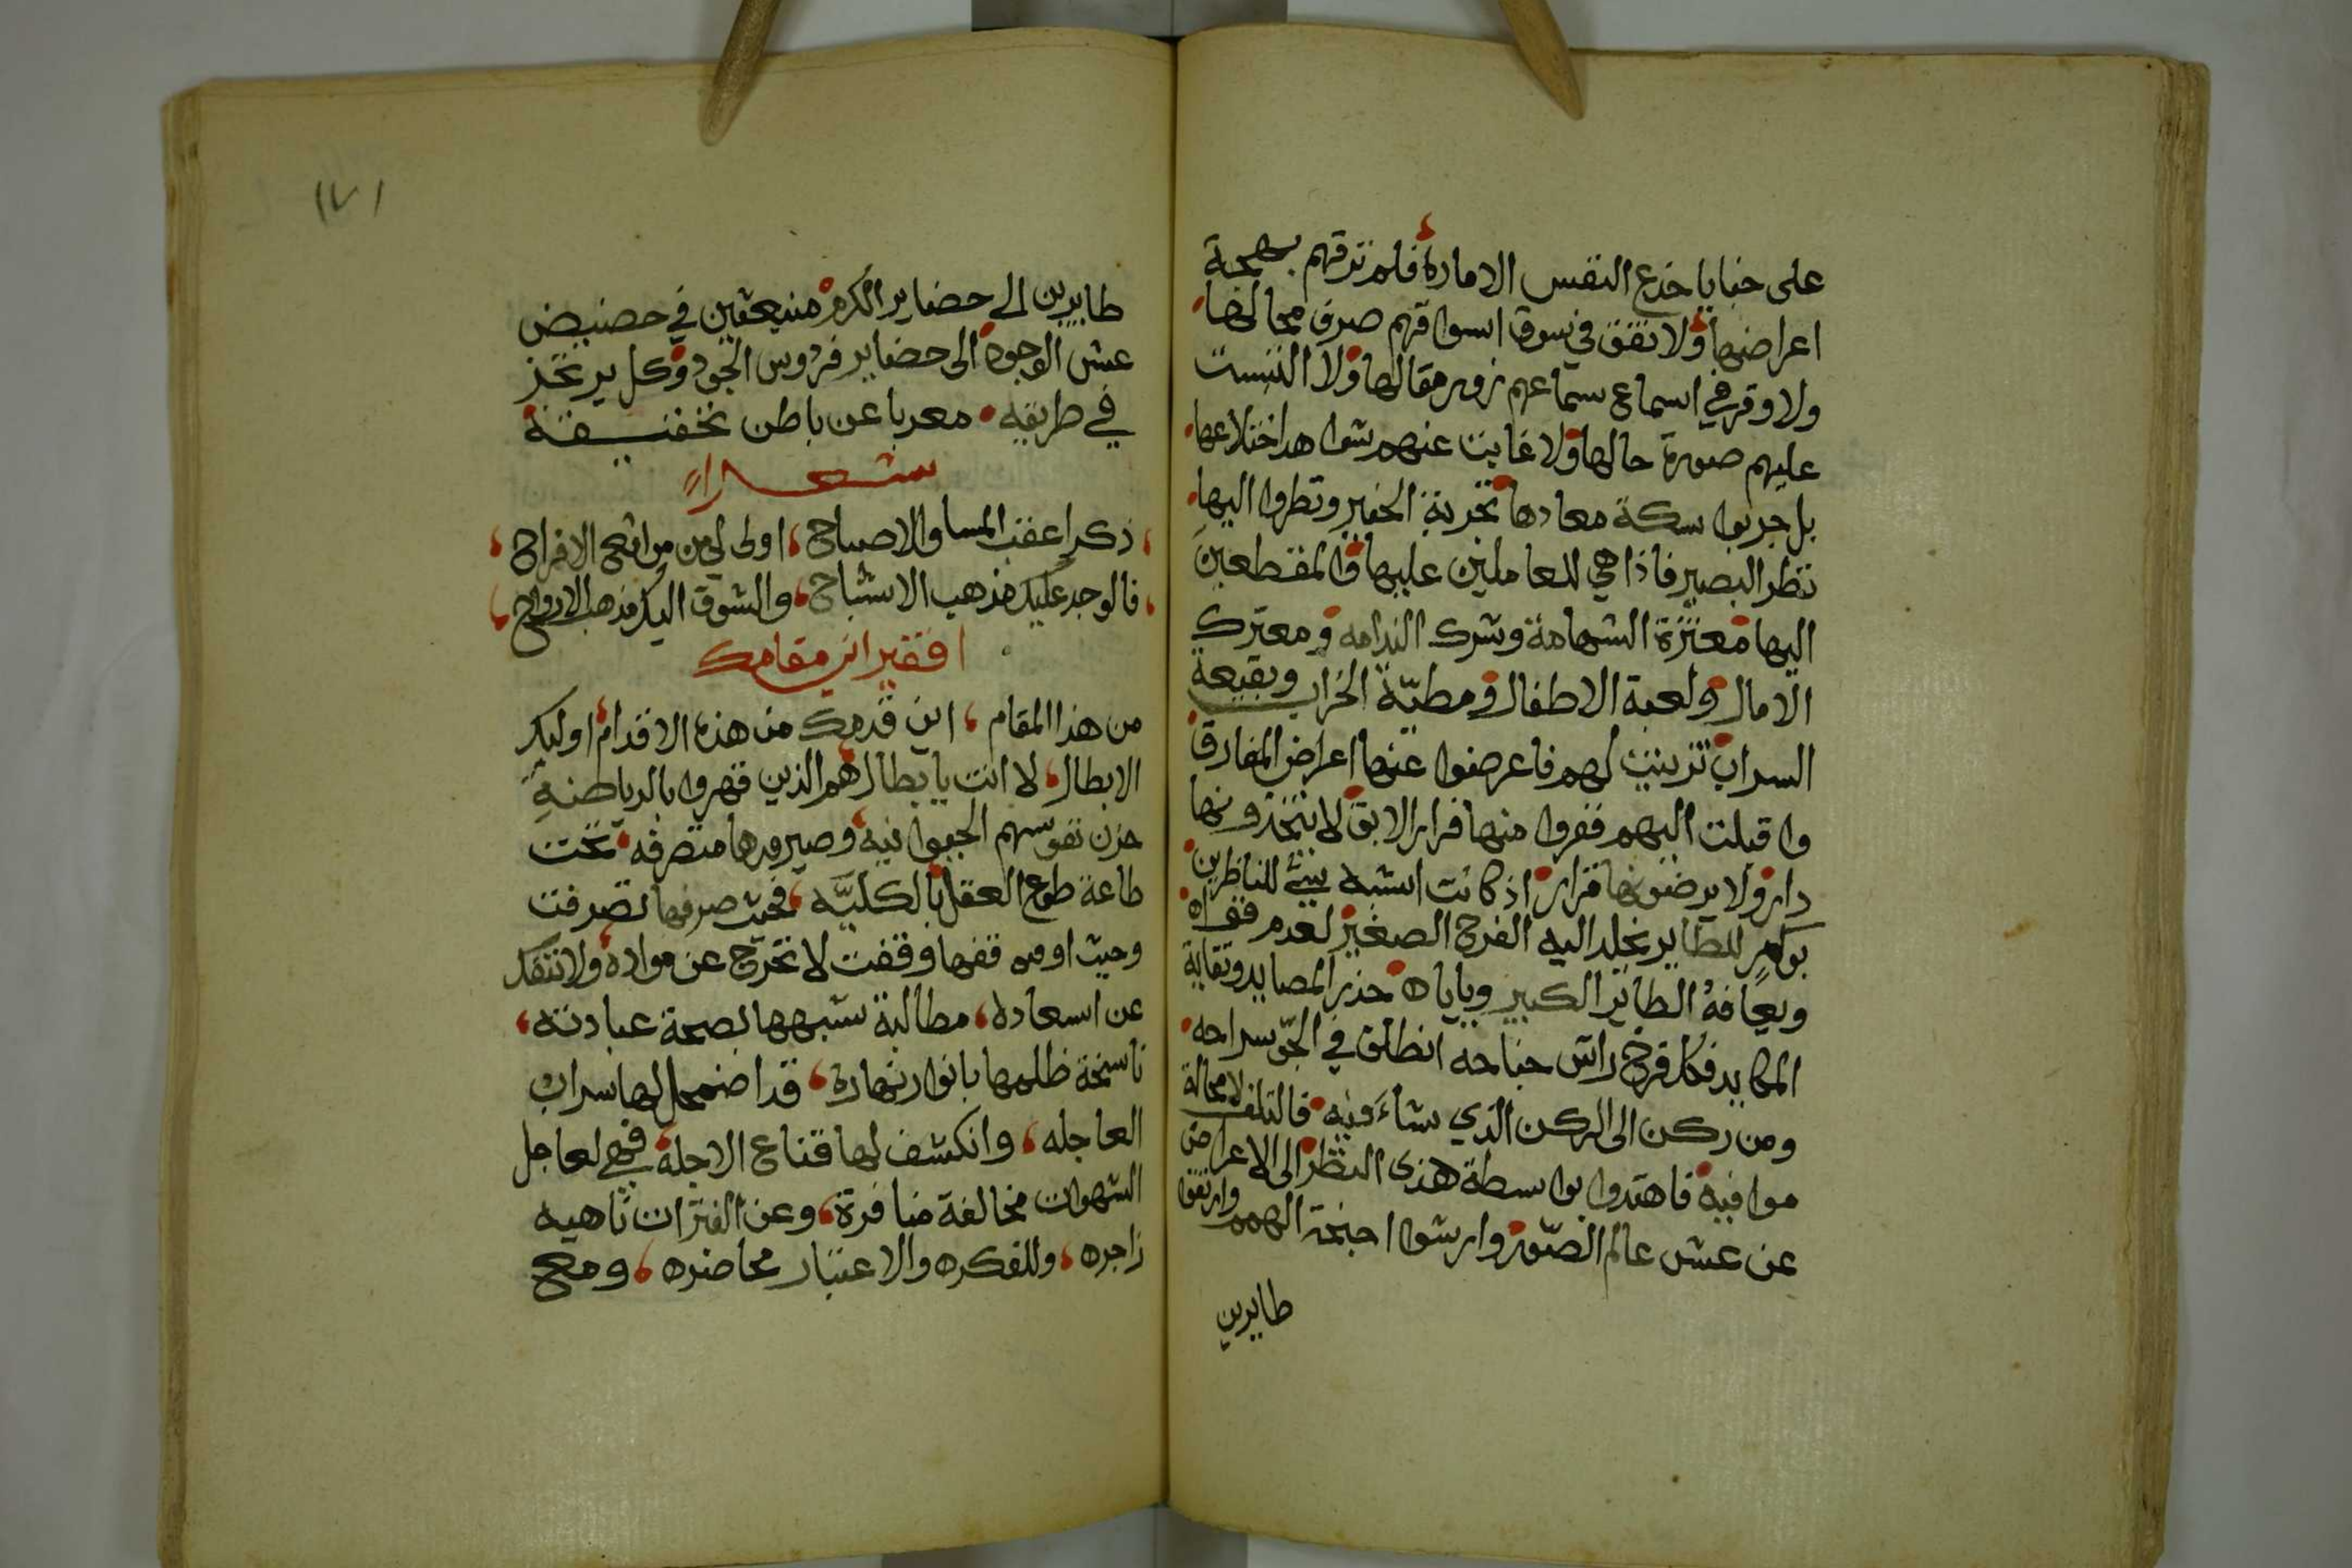 على خبايا خدع النفس الامارة فلم ترقهم بهجة
اعراضها ولا تفق في سوق اسواقهم صرف محالها
ولا وقر في اسماع سماعهم زور مقالها ولا التبست
عليهم صورة حالها ولا غابت عنهم شواهد اختلاعها
بل جربوا سكة معادها تجربة الخبير ونظروا اليها
نظر البصير فاذا هي للعاملين عليها والمقطعين
اليها معثرة الشهامة وشرك الندامه ومعترك
الامال ولعبة الاطفال ومطيّة الخراب وبقيعة
السراب تزينت لهم فاعرضوا عنها اعراض المفارق
واقبلت اليهم ففروا منها فرار الابق لا يتخذونها
دار ولا يرضونها قرار اذ كانت اشبه شئ للناظرين
للطاير يخلد اليه الفرخ الصغير لعدم
ويعافهُ الطاير الكبير وياباه حذر المصايد ونقابة
المكايد فكل فرخ راش جناحه انطلق في الجوّ سراحه
ومن ركن الى الركن الذي شاءَ فيه فالتلف لا محالة
موافيه فاهتدوا بواسطة هذى النظر الى الاعراض
عن عش عالم الصّور وارشوا اجنحة الهمم وارتقوا
طايرين
١٧١
طايرين الى حضاير الكرم منبعثين في حضيض
عش الوجود الى حضاير فردوس الجود وكل يرتجز
في طريقه معربا عن باطن تخفيفة
شعرا
ذكراعقب المسا والاصباح اولى لي من من اقح الافراح
فالوجد عليك مذهب الاشباح والشوق اليك مذهب الارواح
افقير اين مقامك
من هذا المقام اين قدمك من هذه الاقدام اوليك
الابطال لا انت يا بطال هم الذين قهروا بالرياضة
حزن نفوسهم الجموا فيه وصيروها متصرفه تحت
طاعة طوع العقل بالكليَّه فحيث صرفها تصرفت
وحيث اوقفها وقفت لا تخرج عن مراده ولا تنفك
عن اسعاده مطالبة شبهها بصحة عبادته
ناسخة ظلمها بانوار نهاره قد اضمحل لها سراب
العاجله وانكشف لها قناع الاجلة فهي لعاجل
الشهوات مخالفة منافرة وعن الفترات ناهيه
زاجره وللفكره والاعتبار محاضره ومع